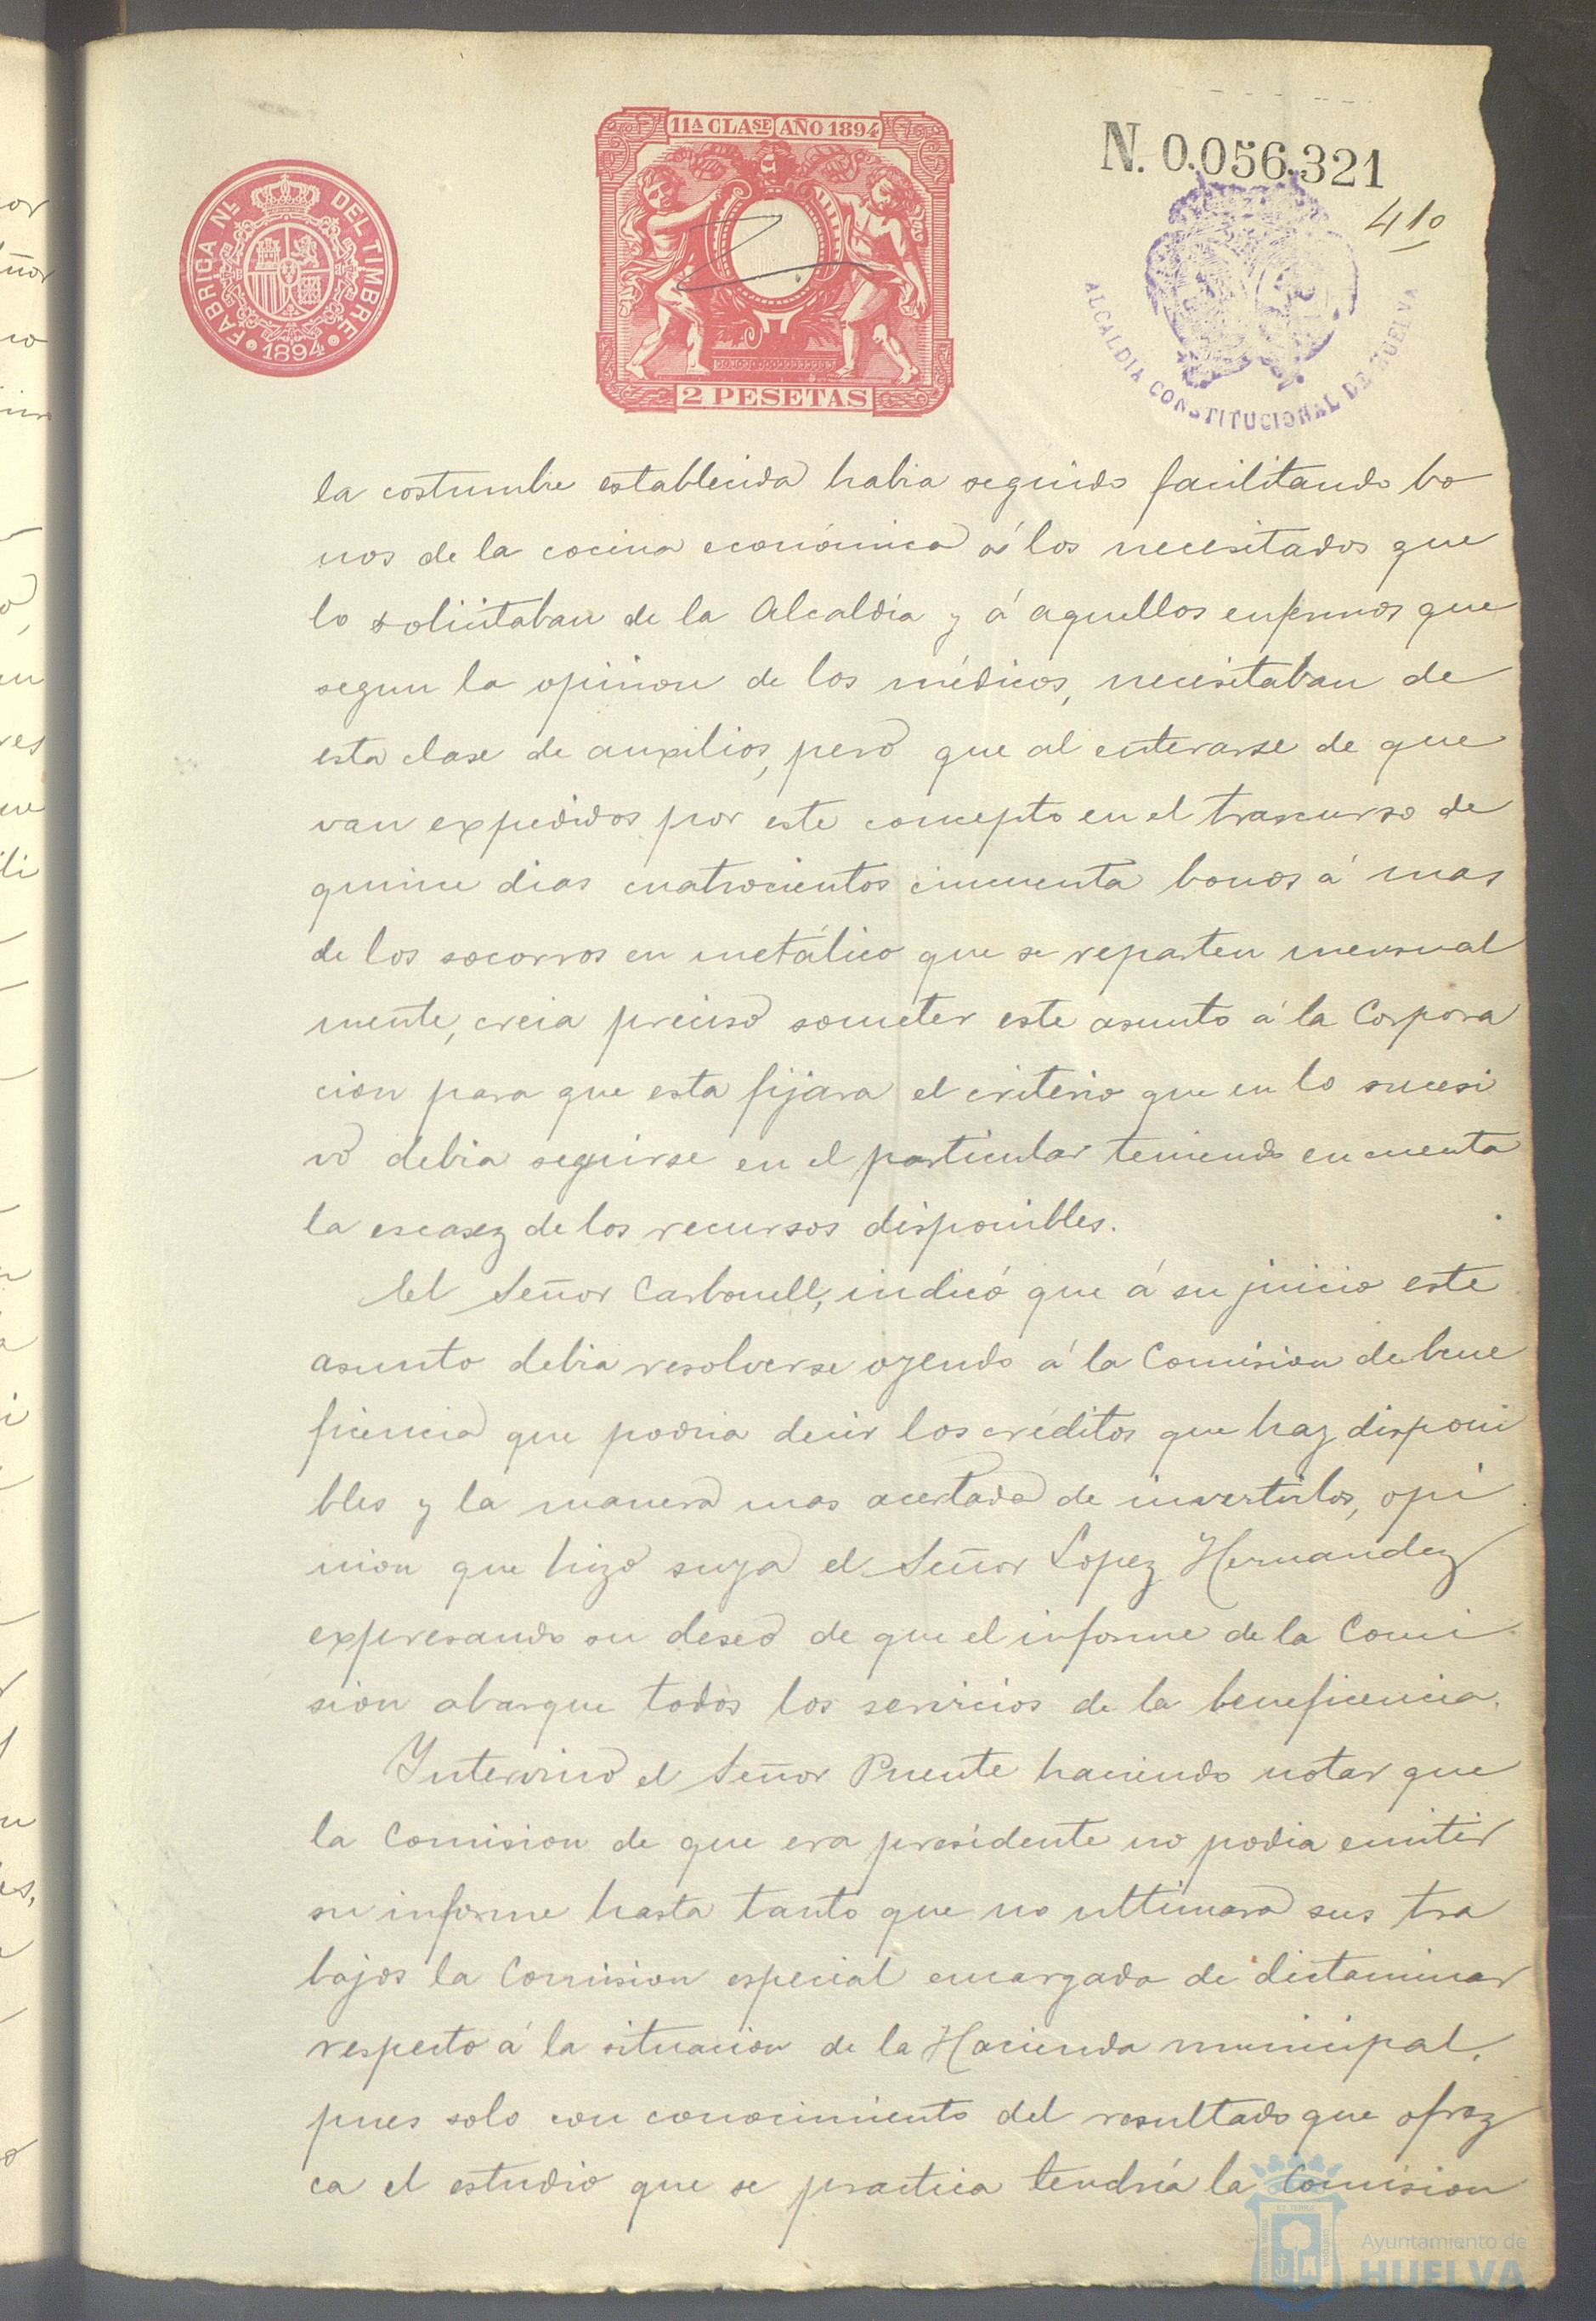 11ª CLASE AÑO 1894
N. 0.056.321
410
FABRICA NL. DEL TIMBRE
1894
2 PESETAS
ALCALDIA CONSTITUCIONAL DE HUELVA
la costumbre establecida habia seguido facilitando bo
nos de la cocina económica á los necesitados que
lo solicitaban de la Alcaldía y á aquellos enfermos que
segun la opinion de los médicos, necesitaban de
esta clase de auxilios, pero que al enterarse de que
van expedidos por este concepto en el trascurso de
quince dias cuatrocientos cincuenta bonos á mas
de los socorros en metálico que se reparten mensual
mente, creia preciso someter este asunto á la Corpora
cion para que esta fijara el criterio que en lo sucesi
vo debia seguirse en el particular teniendo en cuenta
la escasez de los recursos disponibles.
El Señor Carbonell, indicó que á su juicio este
asunto debia resolverse oyendo á la Comision de bene
ficencia que podria decir los créditos que hay disponi
bles y la manera mas acertada de invertirlos, opi
nion que hizo suya el Señor Lopez Hernandez
expresando su deseo de que el informe de la Comi
sion abarque todos los servicios de la beneficencia.
Intervino el Señor Puente haciendo notar que
la Comision de que era presidente no podia emitir
su informe hasta tanto que no ultimara sus tra
bajos la Comision especial encargada de dictaminar
respecto á la situacion de la Hacienda municipal,
pues solo con conocimiento del resultado que ofrez
ca el estudio que se practica tendría la Comision
Ayuntamiento de
HUELVA